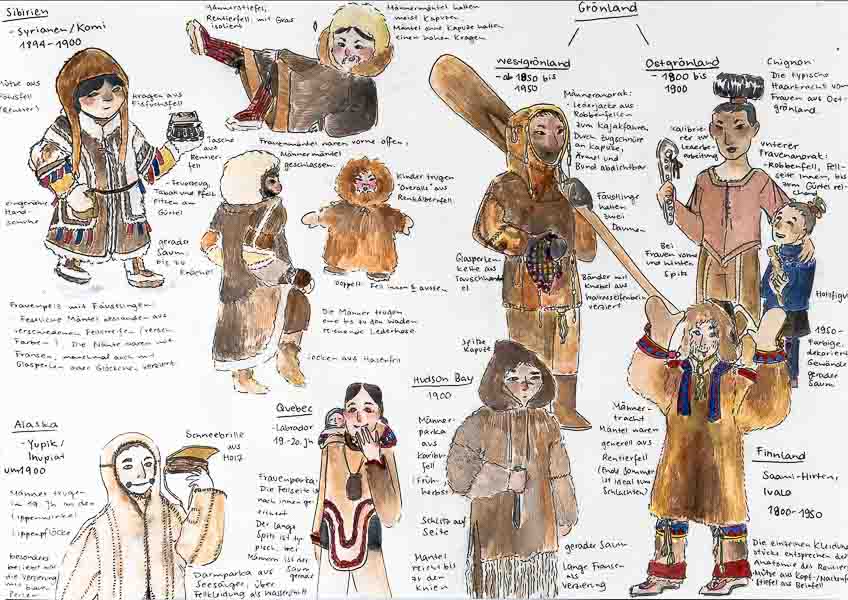 Sibirien
- Syrjänen/Komi
1894-1900
Mütze aus
(Rentier)
Kragen aus
Eisfuchsfell
Tasche
aus
Rentier-
fell
- Feuerzeug,
Tabak und Pfeife
sitzen am
Gürtel
eingenähte
Hand-
schuhe
gerader
Saum,
bis zu
Knöchel
Frauenpelz mit Fäustlingen
Festliche Mäntel bestanden aus
verschiedenen Fellstreifen (versch.
Farben!). Die Nähte waren mit
Fransen, manchmal auch mit
Glasperlen oder Glöckchen verziert
Männerstiefel,
Rentierfell, mit Gras
isoliert
Männermäntel hatten
meist Kapuze
Mäntel ohne Kapuze hatten
einen hohen Kragen
Frauenmäntel waren vorne offen,
Männermäntel
geschlossen.
Kinder trugen
"Overalls" aus
Rentierfell.
Doppelt: Fell innen & aussen
Die Männer trugen
eine bis zu den Waden
reichende Lederhose
Socken aus Hasenfell
Grönland
Westgrönland
- ab 1850 bis
1950
Männeranorak:
- Lederjacke aus
Robbenfellen
zum Kajakfahren,
Durch Zugschnür
an Kapuze,
Ärmel und
Bund abdichtbar
Fäustlinge
hatten
zwei
Daumen
Glasperlen-
kette aus
Tauschhandel
Bänder mit
Knebel aus
verziert
Ostgrönland
- 1800 bis
1900
Chignon:
Die typische
Haartracht von
Frauen aus Ost-
grönland.
Leder be-
arbeitung
unterer
Frauenanorak:
- Robbenfell, Fell-
seite innen, bis
zum Gürtel rei-
chend
Bei
Frauen vorne
und hinten
Spitz
Holzfigur
1950-
Farbige,
dekorierte
Gewänder
gerader
Saum
Alaska
- Yupik/
Inupiat
um 1900
Schneebrille
aus
Holz
Männer trugen
im 19. Jh an den
Lippenwinkel
Lippenpflöcke
besonders
beliebt war
die Verzierung
mit blauen
Perlen
Darmparka aus
Seesäuger, über
Fellkleidung als Wasserschutz
Quebec
- Labrador
19.-20. Jh
Frauenparka:
Die Fellseite ist
nach innen ge-
richtet
Der lange
Spitz ist ty-
pisch, bei
Männern ist der
Saum
gerade
Hudson Bay
1900
Spitze
Kapuze
Männer-
parka
aus
Karibu-
fell
(Früh-,
herbst)
Schlitz auf
Seite
Mäntel
reicht bis
zu den
Knien
gerader Saum
lange Fransen
als
Verzierung
Männer-
tracht
Mäntel waren
generell aus
Rentierfell
(Ende Sommer
ist ideal zum
Schlachten)
Finnland
Saami-Hirten,
Ivalo
1800-1950
Die einzelnen Kleidungs-
stücke entsprechen der
Anatomie des Rentiers
- Mütze aus Kopf-/Nackenfell
- Stiefel aus Beinfell